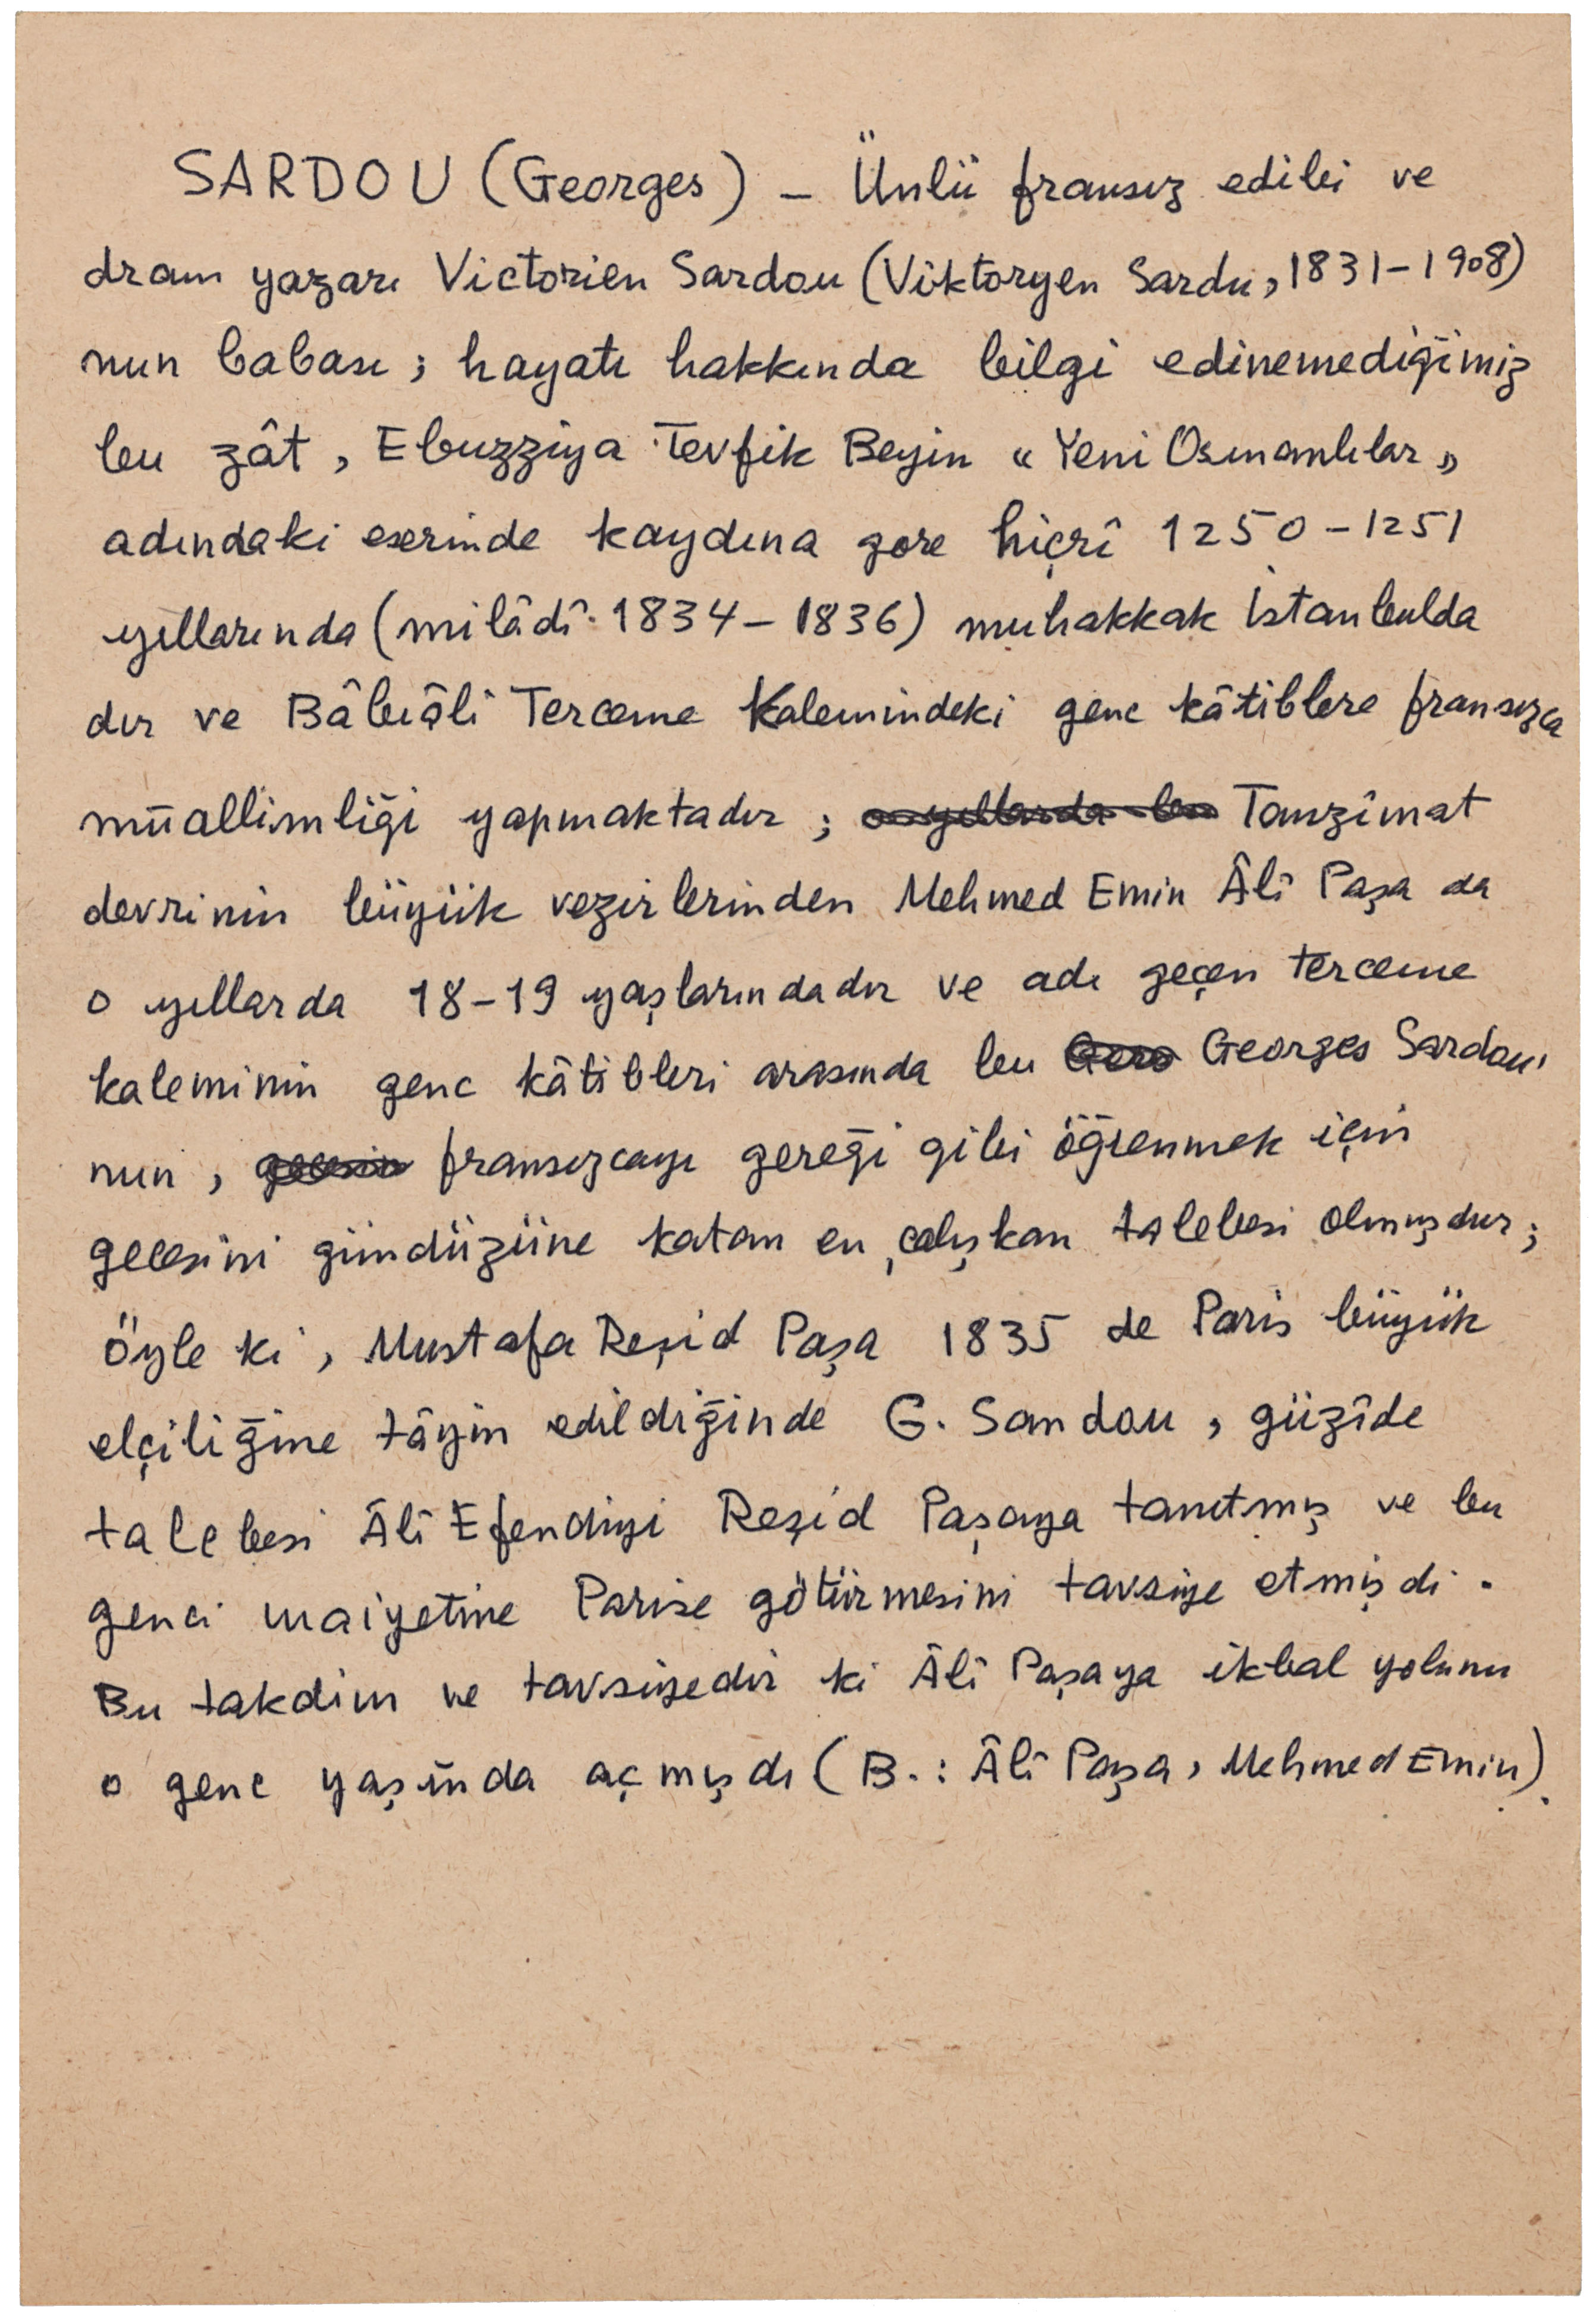 SARDOU (Georges) – Ünlü fransız edibi ve
dram yazarı Victorien Sardou (Viktoryen Sardu, 1831-1908)
nun babası ; hayatı hakkında bilgi edinemediğimiz
bu zât, Ebuzziya Tevfik Beyin « Yeni Osmanlılar »
adındaki eserinde kaydına göre hicrî 1250-1251
yıllarında (milâdî 1834-1836) muhakkak İstanbulda
dır ve Bâbıâli Terceme Kalemindeki genc kâtiblere fransızca
müallimliği yapmaktadır ; o yıllarda bu Tanzîmat
devrinin büyük vezirlerinden Mehmed Emin Âlî Paşa da
o yıllarda 18-19 yaşlarındadır ve adı geçen terceme
kaleminin genc kâtibleri arasında bu Geor Georges Sardou'
nun, gecesin fransızcayı gereği gibi öğrenmek için
gecesini gündüzüne katan en çalışkan talebesi olmuşdur;
öyle ki, Mustafa Reşid Paşa 1835 de Paris büyük
elçiliğine tâyin edildiğinde G. Sandou, güzîde
talebesi Âlî Efendiyi Reşid Paşaya tanıtmış ve bu
genci maiyetine Parise götürmesini tavsiye etmişdi.
Bu takdim ve tavsiyedir ki Âlî Paşaya ikbal yolunu
o genc yaşında açmışdı (B. : Âlî Paşa, Mehmed Emin).